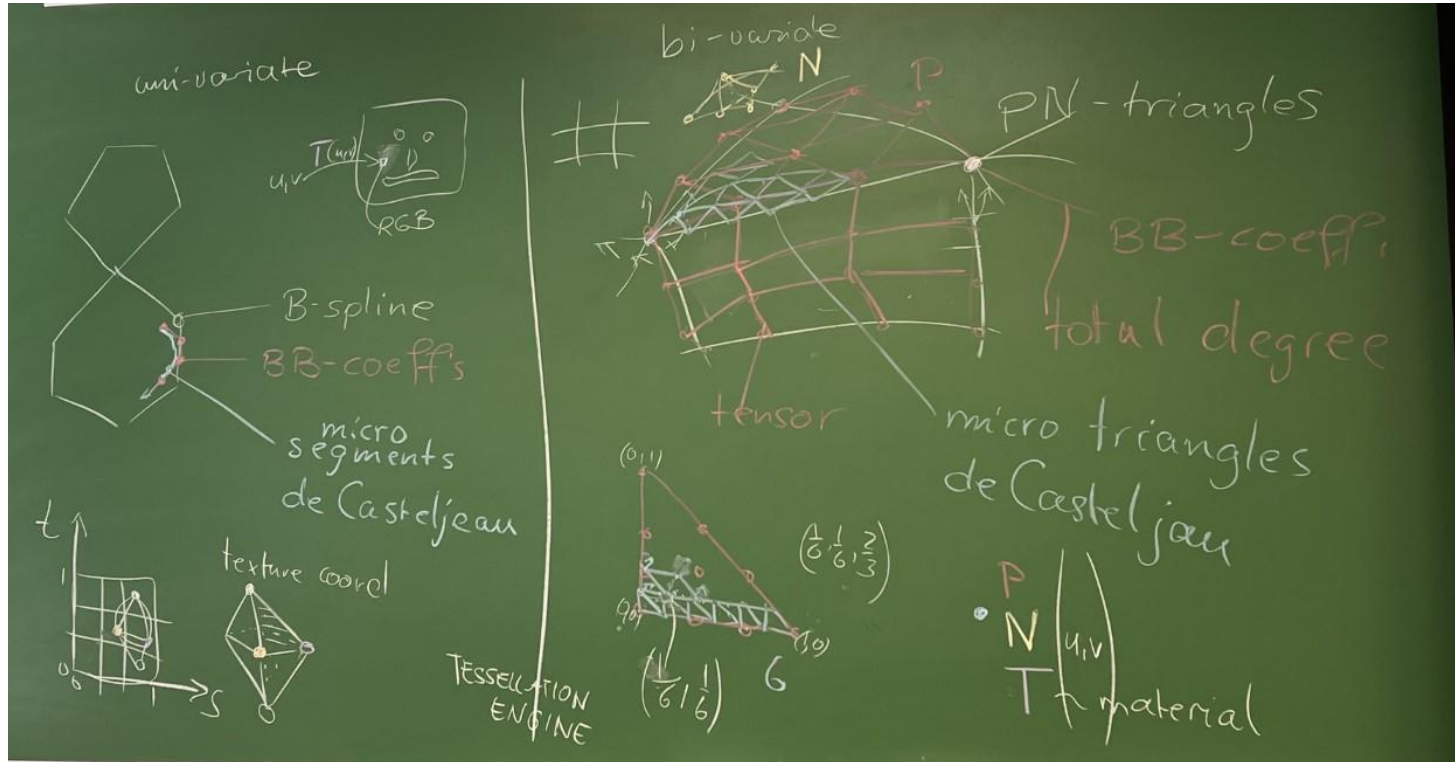 uni-variate
T(u,v)
u,v
RGB
B-spline
BB-coeff's
micro
segments
de Casteljeau
t
1
0
0
1
s
texture coord
TESSELLATION
ENGINE
bi-variate
N
P
PN-triangles
BB-coeff's
total degree
tensor
micro triangles
de Casteljau
(0,1)
(1,0)
(1/6, 1/6, 2/3)
(1/6, 1/6)
6
P
N
T
(u,v)
material